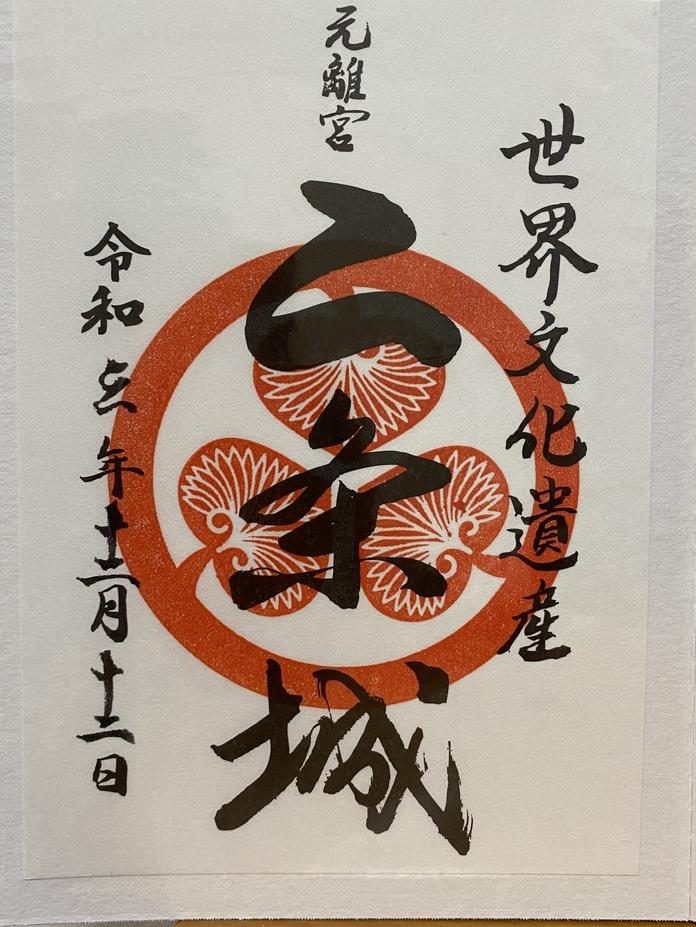 世界文化遺産
元離宮
二条城
令和五年十二月十二日